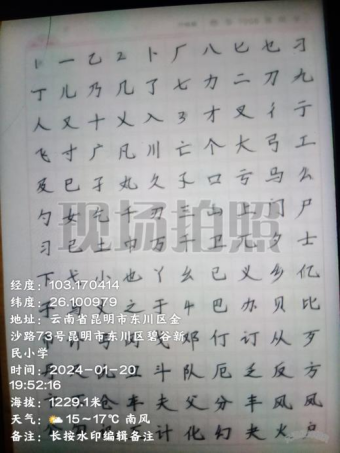 1 一 乙 2 卜 厂 八 匕 七 刁
丁 儿 乃 几 了 七 力 二 刀 九
人 又 十 乂 入 3 才 叉 彳 亍
飞 寸 广 凡 川 亡 个 大 弓 工
及 巳 孑 丸 久 孓 口 亏 马 么
勺 女 乞 千 刃 三 山 上 门 尸
习 已 土 巾 万 干 卫 兀 夕 士
下 弋 小 也 丫 幺 已 义 乡 亿
之 于 4 巴 办 贝 比
邓 仃 订 从 歹
斗 队 厄 乏 反 方
仓 车 夫 父 分 丰 风 凤
计 化 幻 夹 火 户
现场拍照
经度：103.170414
纬度：26.100979
地址：云南省昆明市东川区金
沙路73号昆明市东川区碧谷新
民小学
时间：2024-01-20
19:52:16
天气：15~17℃ 南风
海拔：1229.1米
备注：长按水印编辑备注